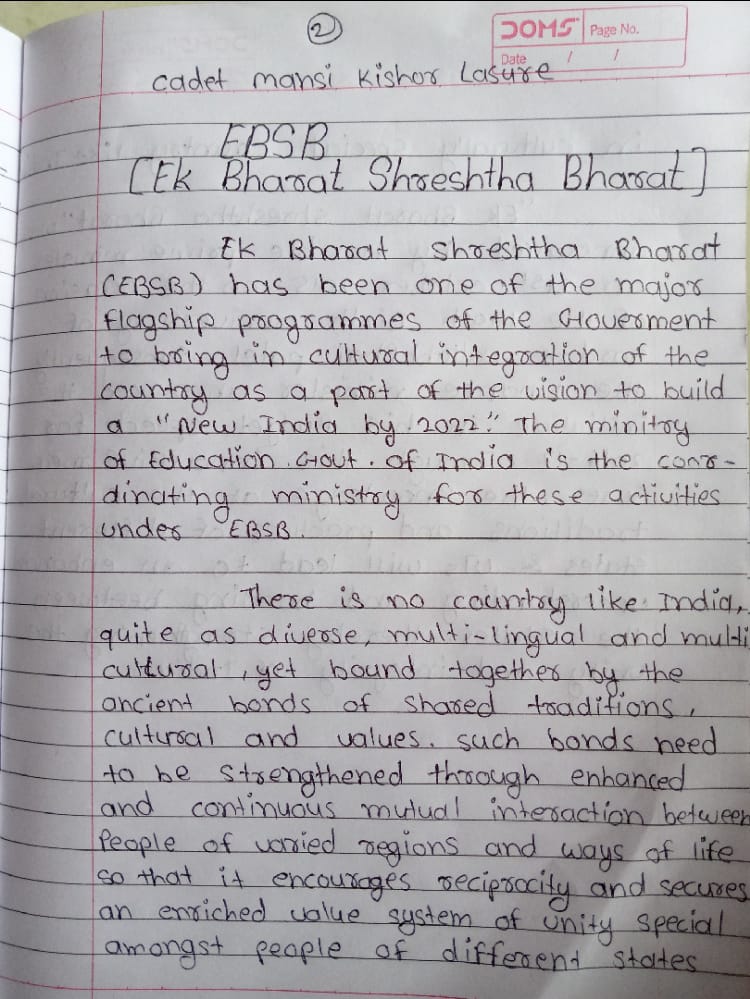 2
DOMS Page No.
Date / /
cadet mansi kishor Lasure
EBSB
[Ek Bharat Shreshtha Bharat]
Ek Bharat Shreshtha Bharat
(EBSB) has been one of the major
flagship programmes of the Gouerment
to bring in cultural integration of the
country as a part of the vision to build
a "New India by 2022." The minitry
of Education Gout. of India is the coor-
dinating ministry for these activities
under EBSB.
There is no country like India,
quite as diverse, multi-lingual and multi
cultural, yet bound together by the
ancient bonds of shared traditions,
cultural and values. such bonds need
to be strengthened through enhanced
and continuous mutual interaction between
People of varied regions and ways of life
so that it encourages reciprocity and secures
an enriched value system of unity special
amongst people of different states